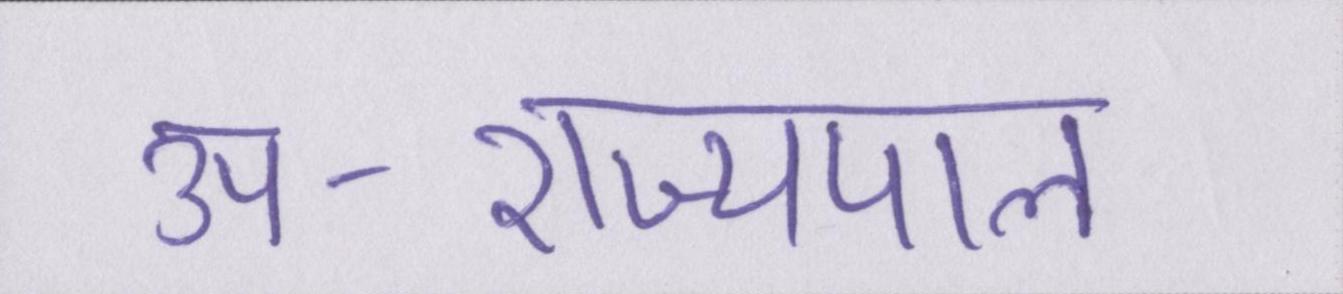 उप-राज्यपाल